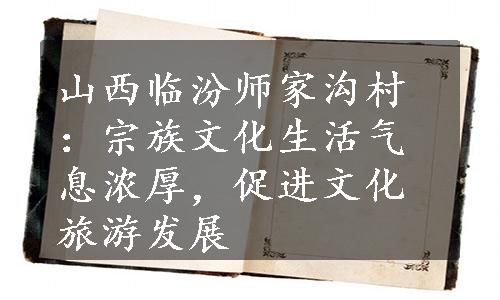 山西临汾师家沟村
：宗族文化生活气
息浓厚，促进文化
旅游发展